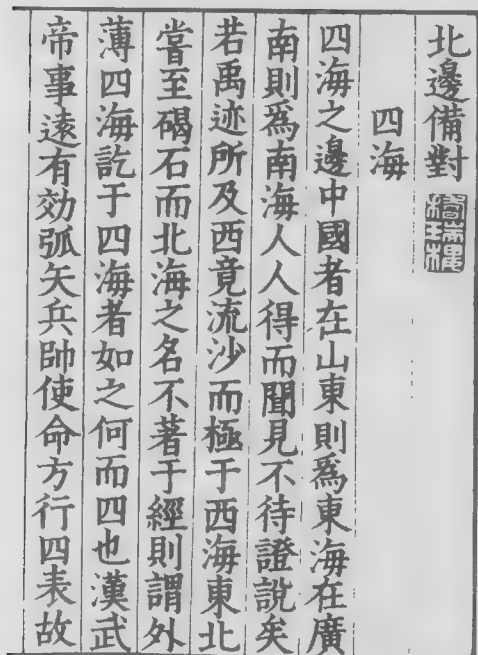 北邊備對
四海
四海之邊中國者在山東則爲東海在廣
南則爲南海人人得而聞見不待證說矣
若禹迹所及西竟流沙而極于西海東北
嘗至碣石而北海之名不著于經則謂外
薄四海訖于四海者如之何而四也漢武
帝事逺有効弧矢兵帥使命方行四表故